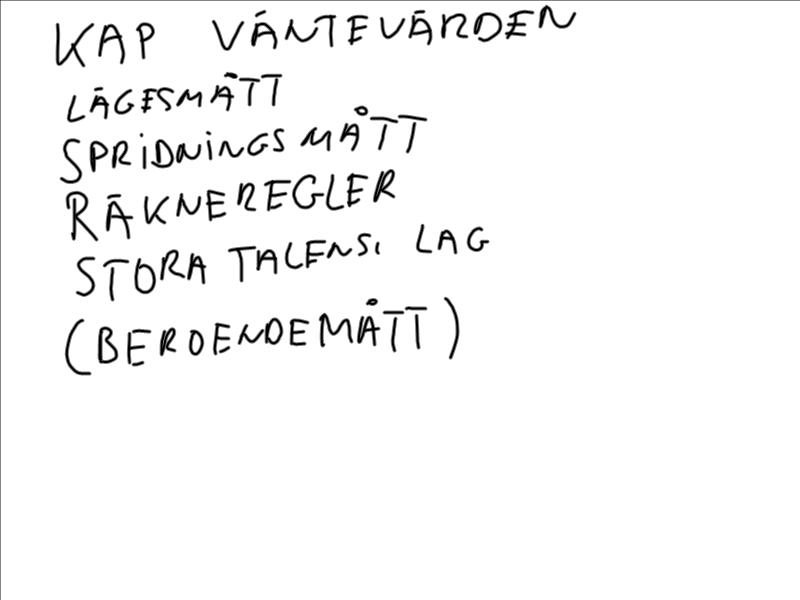 KAP VÄNTEVÄRDEN
LÄGESMÅTT
SPRIDNINGSMÅTT
RÄKNEREGLER
STORA TALENS LAG
(BEROENDEMÅTT)